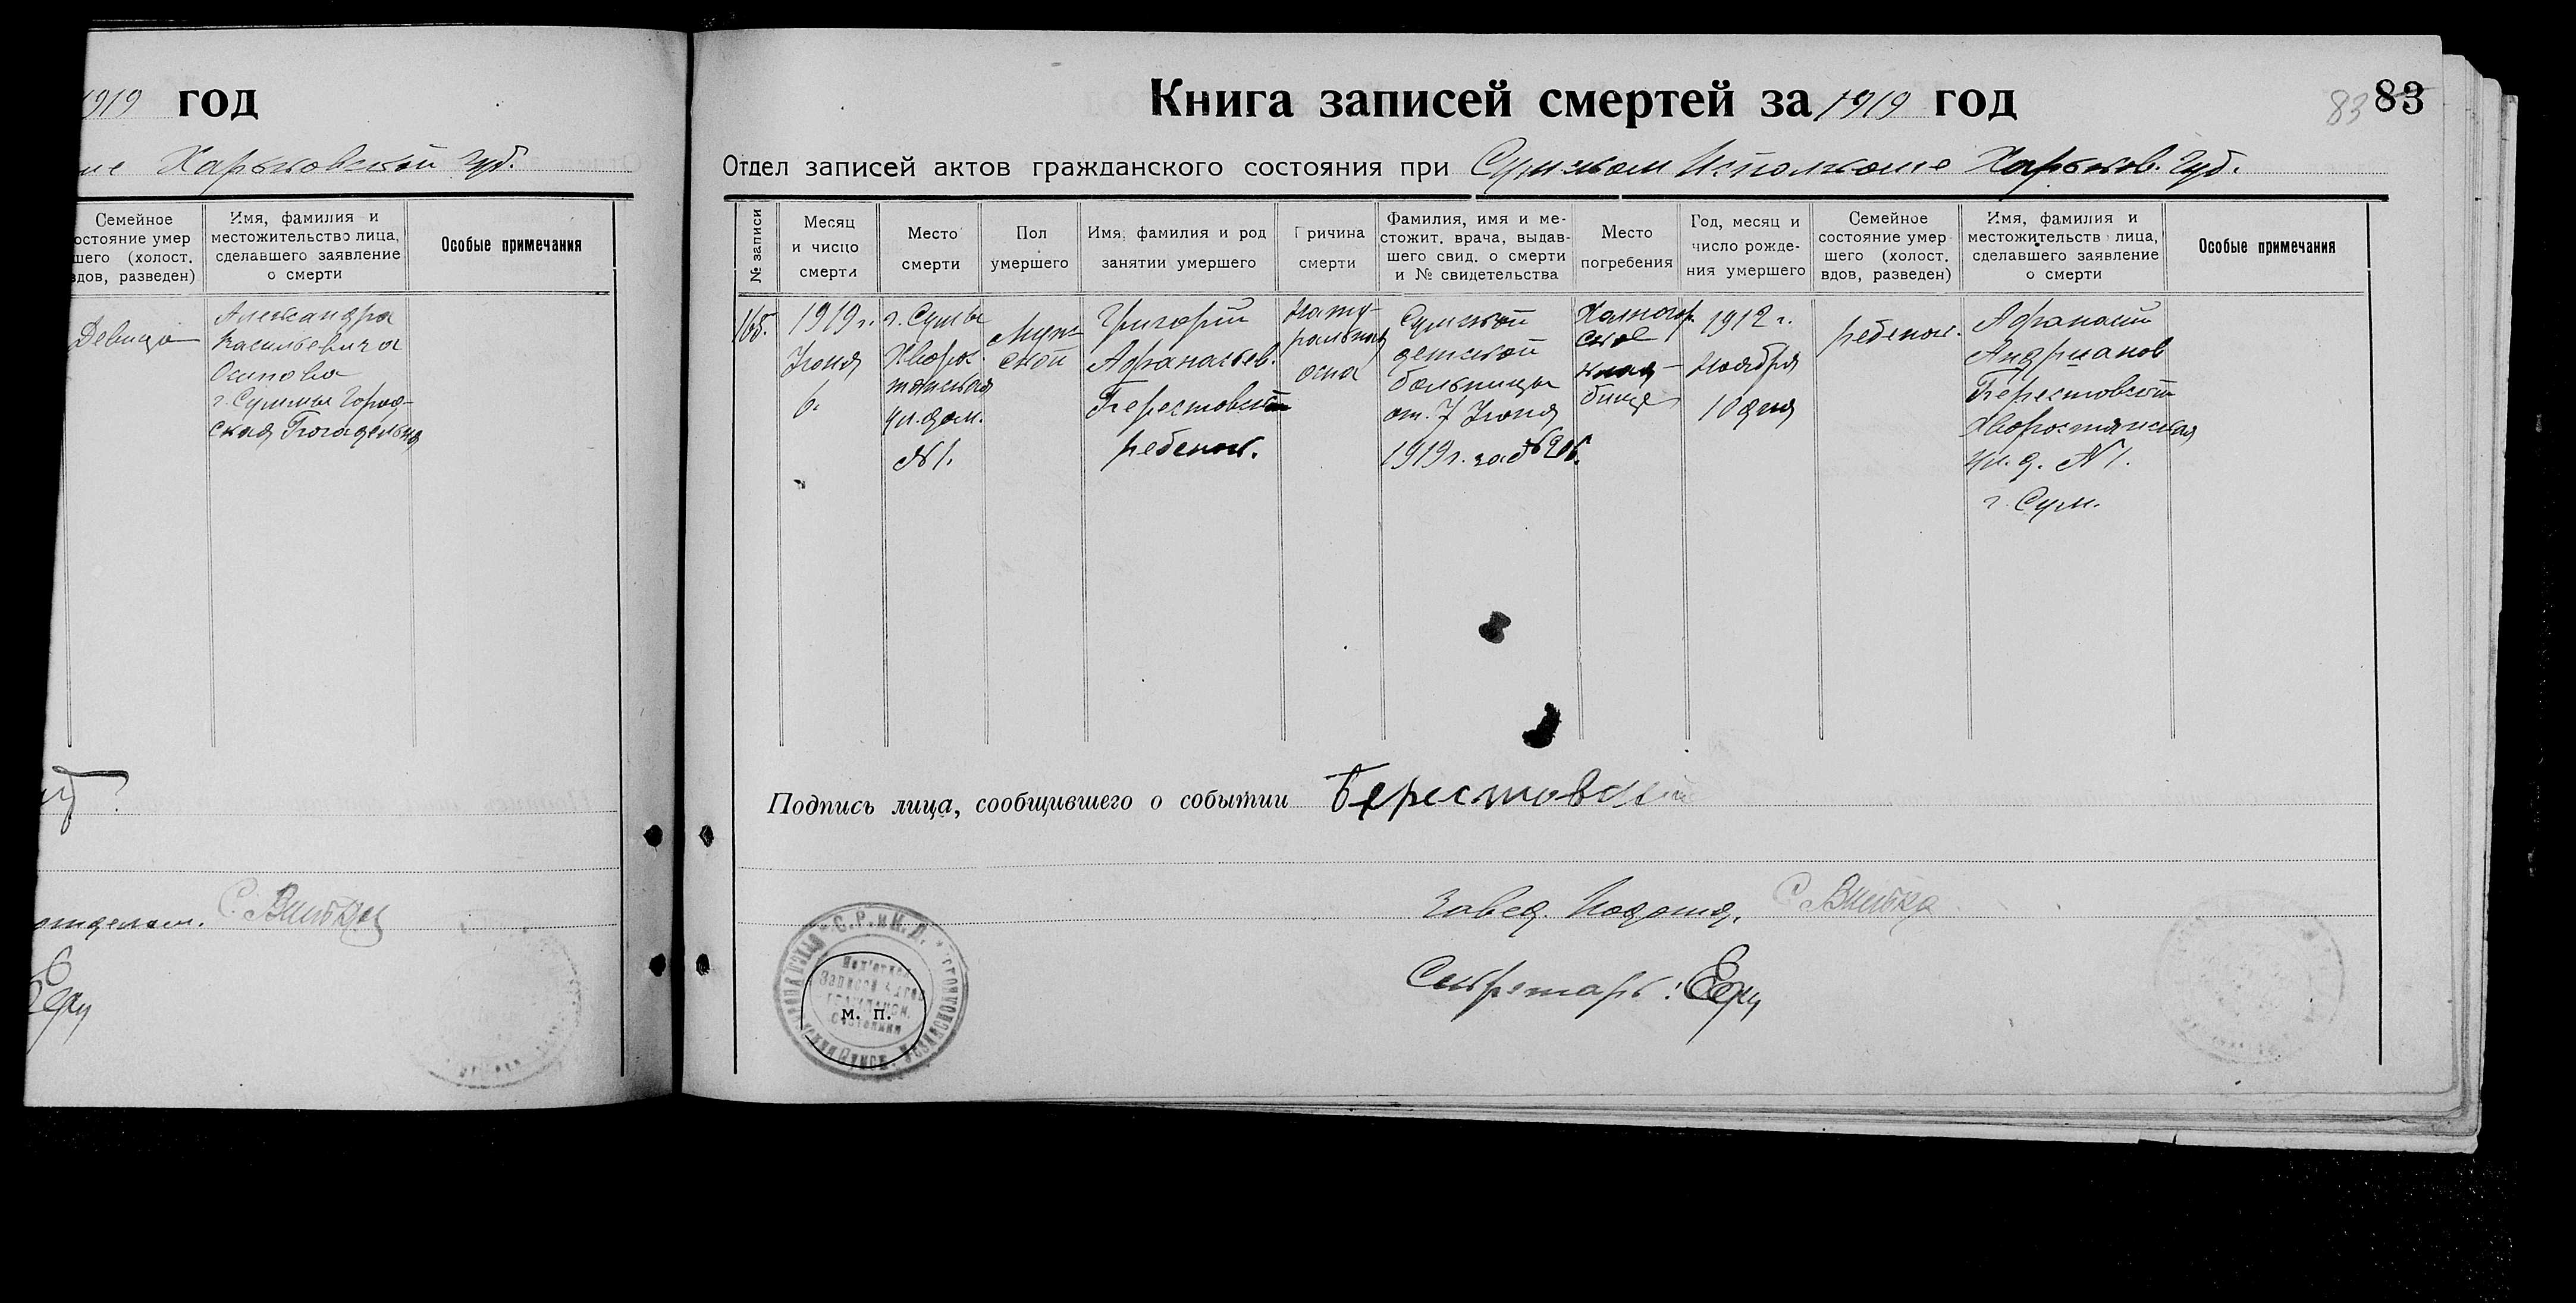 1919 год
Харьковской Губ.
Семейное
остояние умер
шего (холост.
вдов, разведен)
Имя, фамилия и
местожительство лица,
сделавшего заявление
о смерти
Особые примечания
Девица
Александра
Васильевича
Осипова
г. Суммы Город-
ская Богадельня
отделом. С.
Книга записей смертей за 1919 год
83 83
Отдел записей актов гражданского состояния при Сумском Исполкоме Харьков. Губ.
№ записи
Месяц
и число
смерти
Место
смерти
Пол
умершего
Имя, фамилия и род
занятии умершего
Причина
смерти
Фамилия, имя и ме-
стожит. врача, выдав-
шего свид. о смерти
и № свидетельства
Место
погребения
Год, месяц и
число рожде-
ния умершего
Семейное
состояние умер
шего (холост.
вдов, разведен)
Имя, фамилия и
местожительств лица,
сделавшего заявление
о смерти
Особые примечания
165.
1919 г.
Июня
6.
г. Сумы
Хворос-
тянская
ул. дом.
№ 1.
Муж-
ской
Григорий
Афанасьев.
Берестовский
ребенок.
Нату-
ральная
оспа
Сумской
детской
больницы
от 7 Июня
1919 г. за №
ское
клад-
бище
1912 г.
Ноября
10 дня
ребенок.
Афанасий
Андрианов
Берестовский
Хворостянская
ул. д. № 1.
г. Сум.
Подпись лица, сообщившего о событии Берестовский
Завед. Подотд. С.
Секретарь:
С.Р. и К.Д.
Записей Актов
Граждансн.
Состояния
м. п.